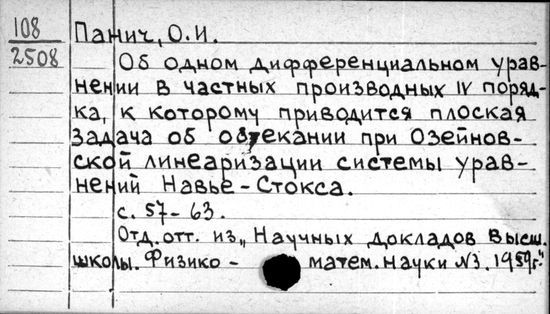 108
2508
Панич, О.И.
Об одном дифференциальном урав-
нении в частных производных IV поряд-
ка, к которому приводится плоская
задача об обтекании при Озейнов-
ской линеаризации системы урав-
нений Навье-Стокса.
с. 57-63.
Отд. отт. из „Научных докладов Высш.
школы. Физико - матем. науки №3. 1959г."